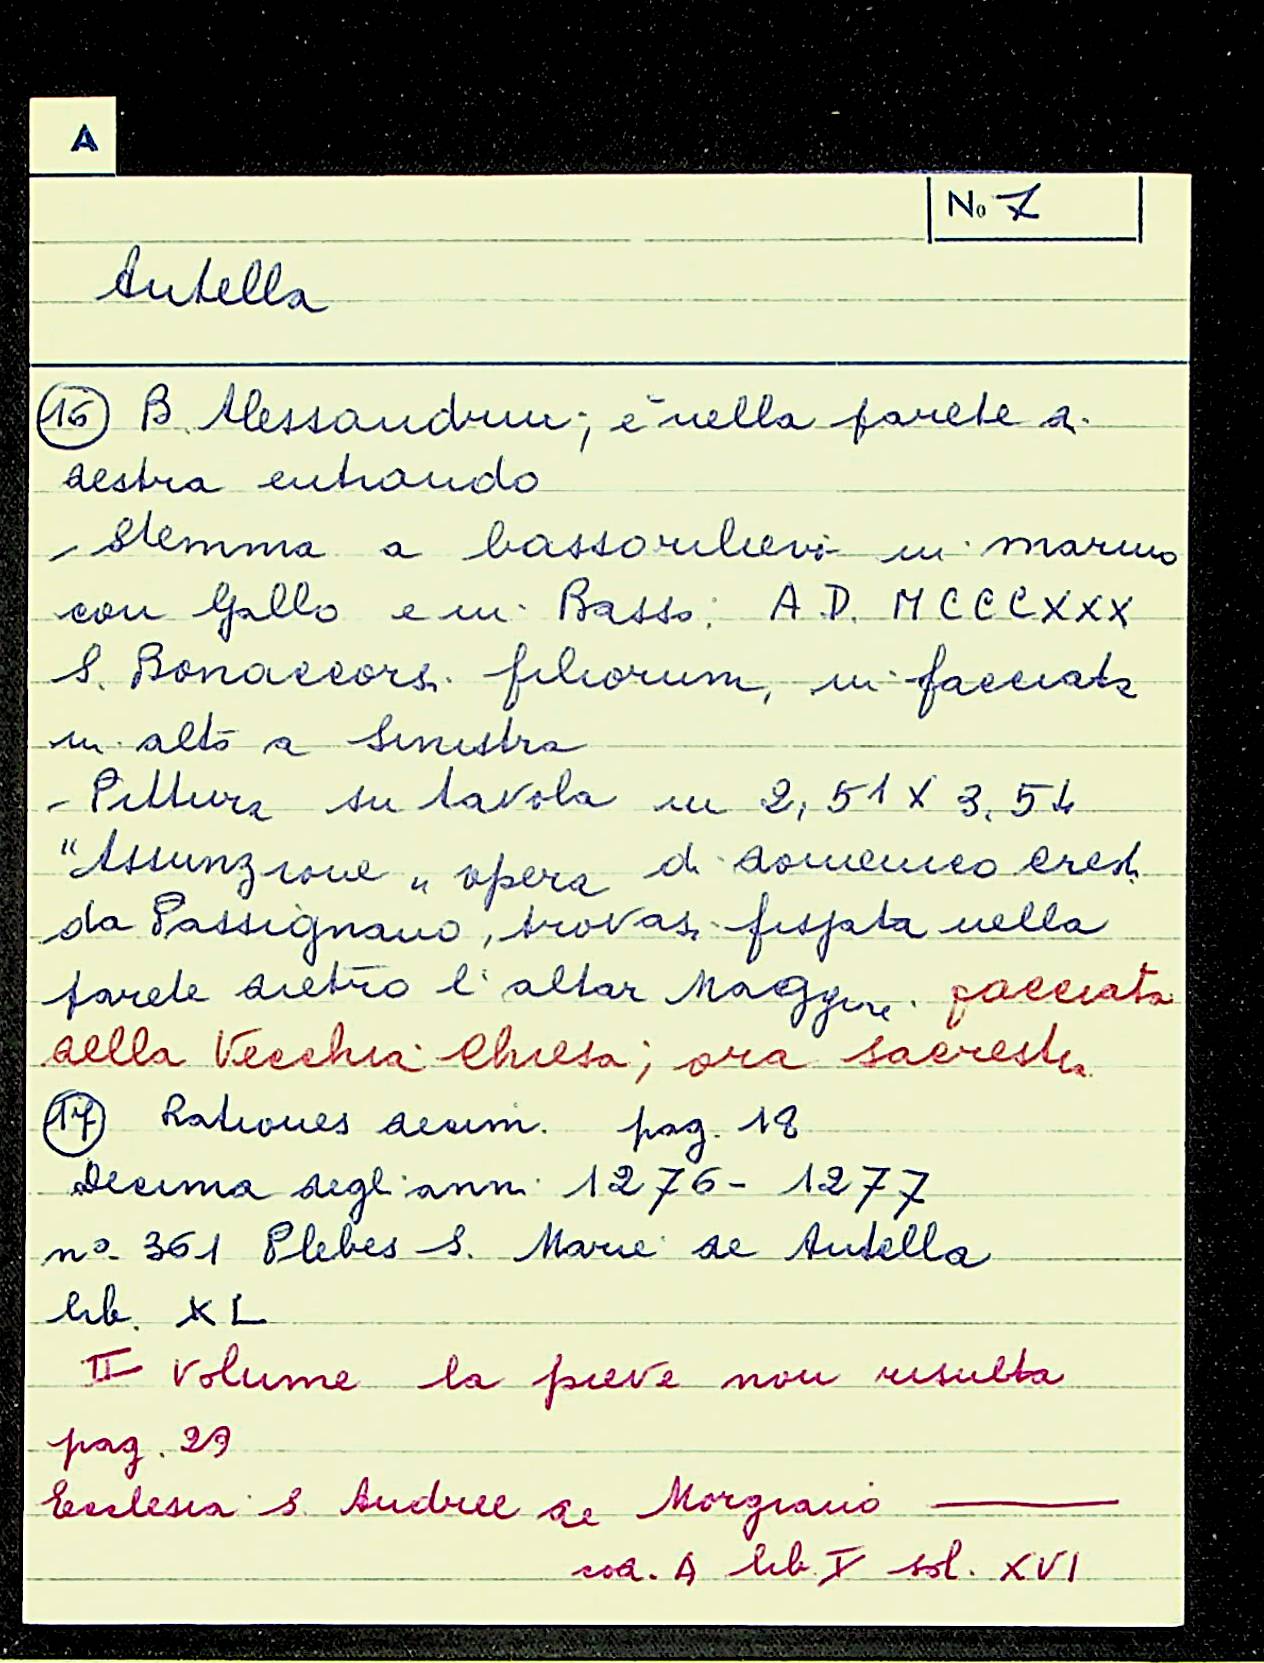 A
No 7
Antella
16 B. Alessandrini; è nella parete a
destra entrando
- Stemma a bassorilievi in marmo
con Gallo e in Basso: A.D. MCCCXXX
S. Bonaccorsi filiorum, in facciata
in alto a sinistra
- Pittura su tavola in 2,51 X 3,54
"Assunzione" opera di Domenico Cresti
da Passignano, trovasi fissata nella
parete dietro l'altar Maggiore. facciata
della Vecchia Chiesa; ora sacrestia
17 Rationes decim. pag. 18
Decima degli anni 1276 - 1277
no. 361 Plebes S. Marie de Antella
lib. XL
II Volume la pieve non risulta
pag. 29
Ecclesia S. Andree de Morgiano
cod. A lib. V sol. XVI